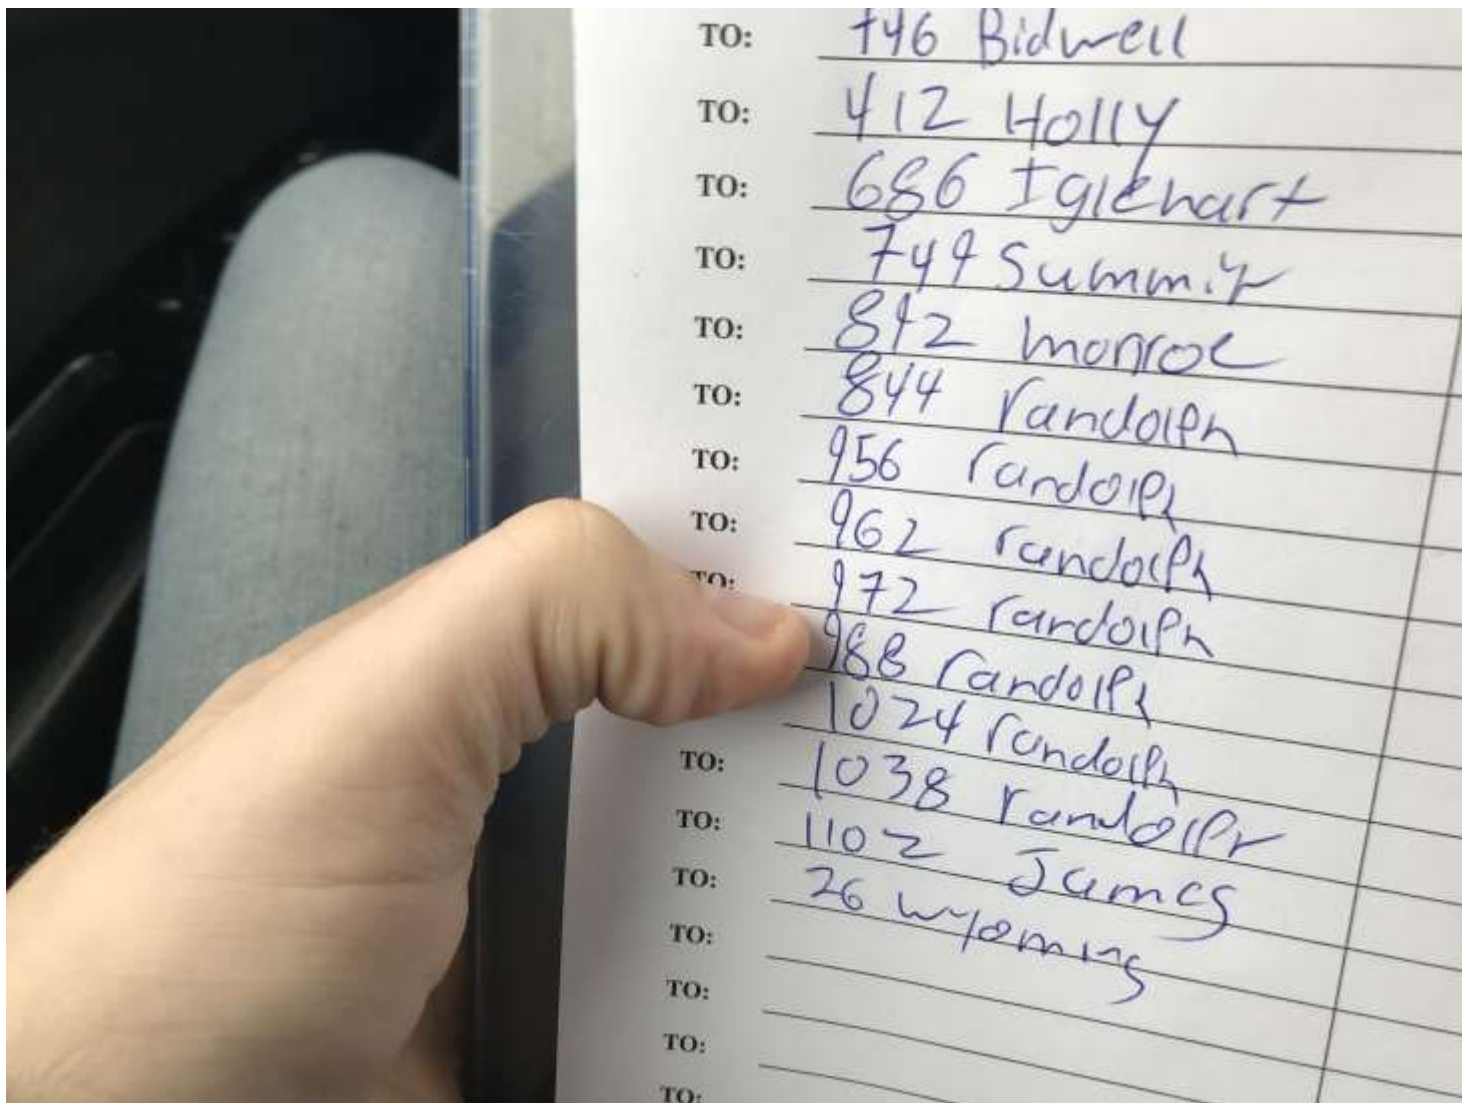 TO: 746 Bidwell
TO: 412 Holly
TO: 686 Iglehart
TO: 749 Summit
TO: 842 monroe
TO: 844 randolph
TO: 956 randolph
TO: 962 randolph
TO: 972 randolph
988 randolph
1024 randolph
TO: 1038 randolph
TO: 1102 James
TO: 26 wyoming
TO:
TO:
TO:
TO: